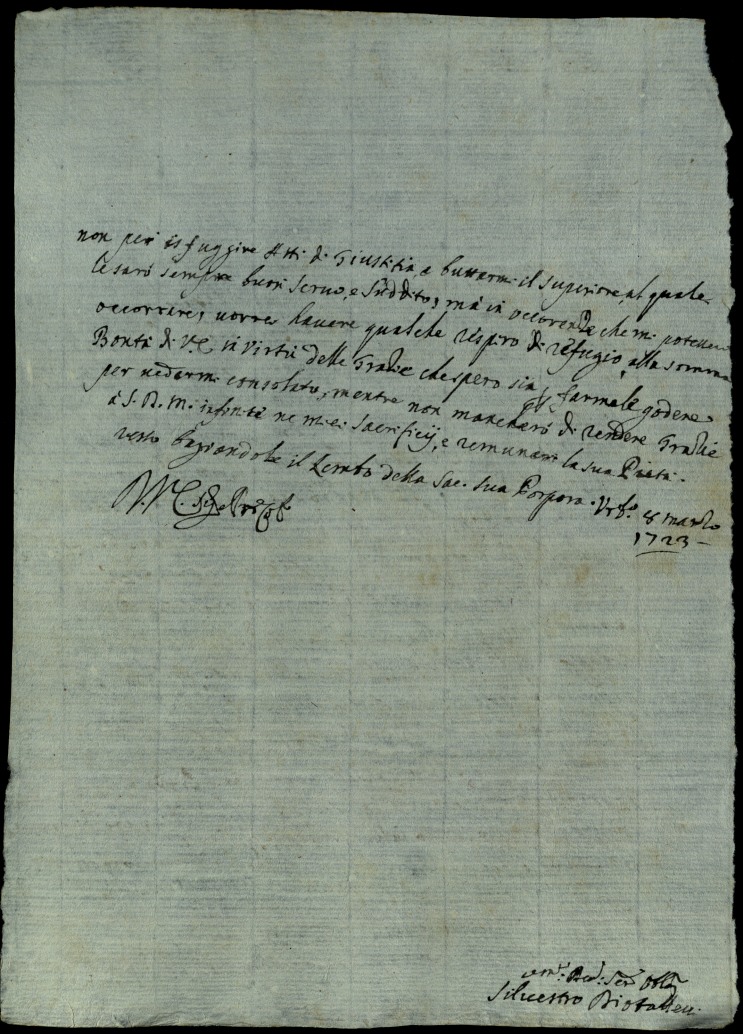 non per isfuggire Atti di Giustitia, e buttarmi il superiore, al quale
le sarò sempre buon servo, e suddito, mà in occorenze che mi potessero
occorrere, vorrei havere qualche respiro di refugio alla somma
Bontà di V.E in virtù delle Grazie che spero sia p farmele godere
per vedermi consolato, mentre non mancherò di rendere Grazie
à S. D. M. infinite ne miei Sacrificij, e remunari la sua Pietà.
resto baziandole il Lembo della Sac. sua Porpora. Urb.o 8 marzo
1723 -
V. E.
um.o Dev. Ser. Obl.
Silvestro